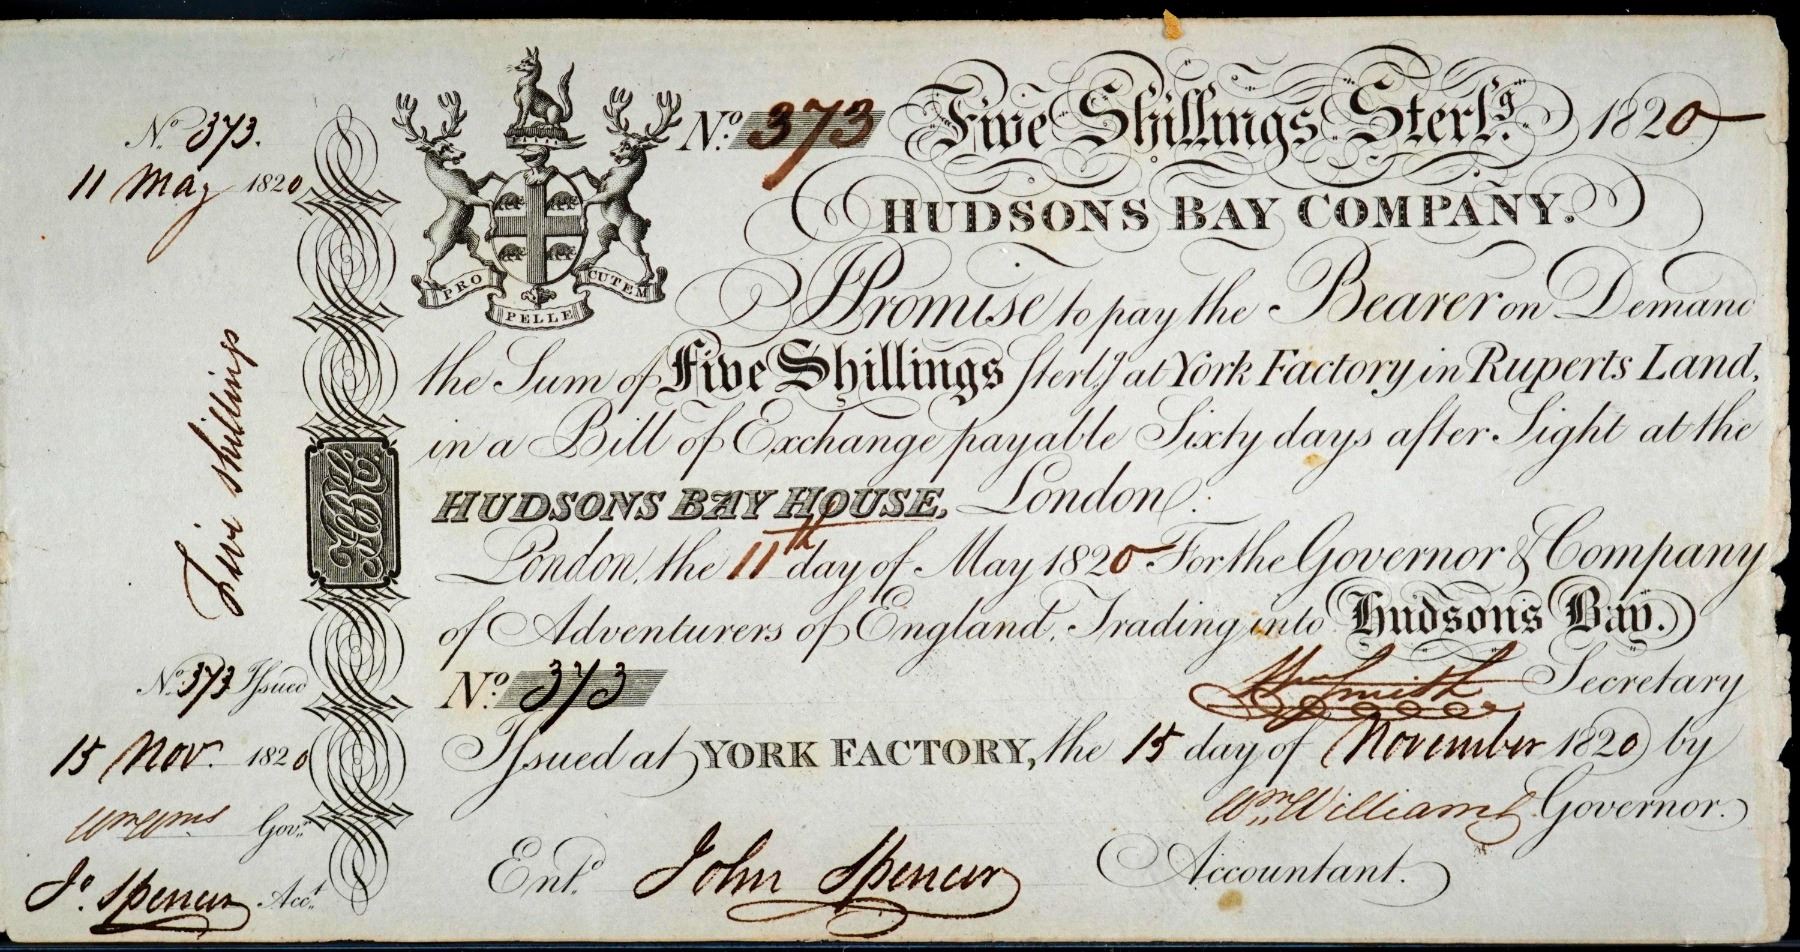 No. 373.
11 May 1820
Five shillings
HBC.
No. 373 Issued
15 Nov. 1820
Wm Wms Govr.
Jo. Spencer Acct.
PRO PELLE CUTEM
No. 373 Five Shillings Sterlg. 1820
HUDSONS BAY COMPANY.
I Promise to pay the Bearer on Demand
the Sum of Five Shillings Sterlg. at York Factory in Ruperts Land,
in a Bill of Exchange payable Sixty days after Sight at the
HUDSONS BAY HOUSE, London.
London, the 11th day of May 1820 For the Governor & Company
of Adventurers of England, Trading into Hudson's Bay.
No. 373 Wm Smith Secretary
Issued at YORK FACTORY, the 15 day of November 1820 by
Wm. Williams Governor.
Entd. John Spencer Accountant.